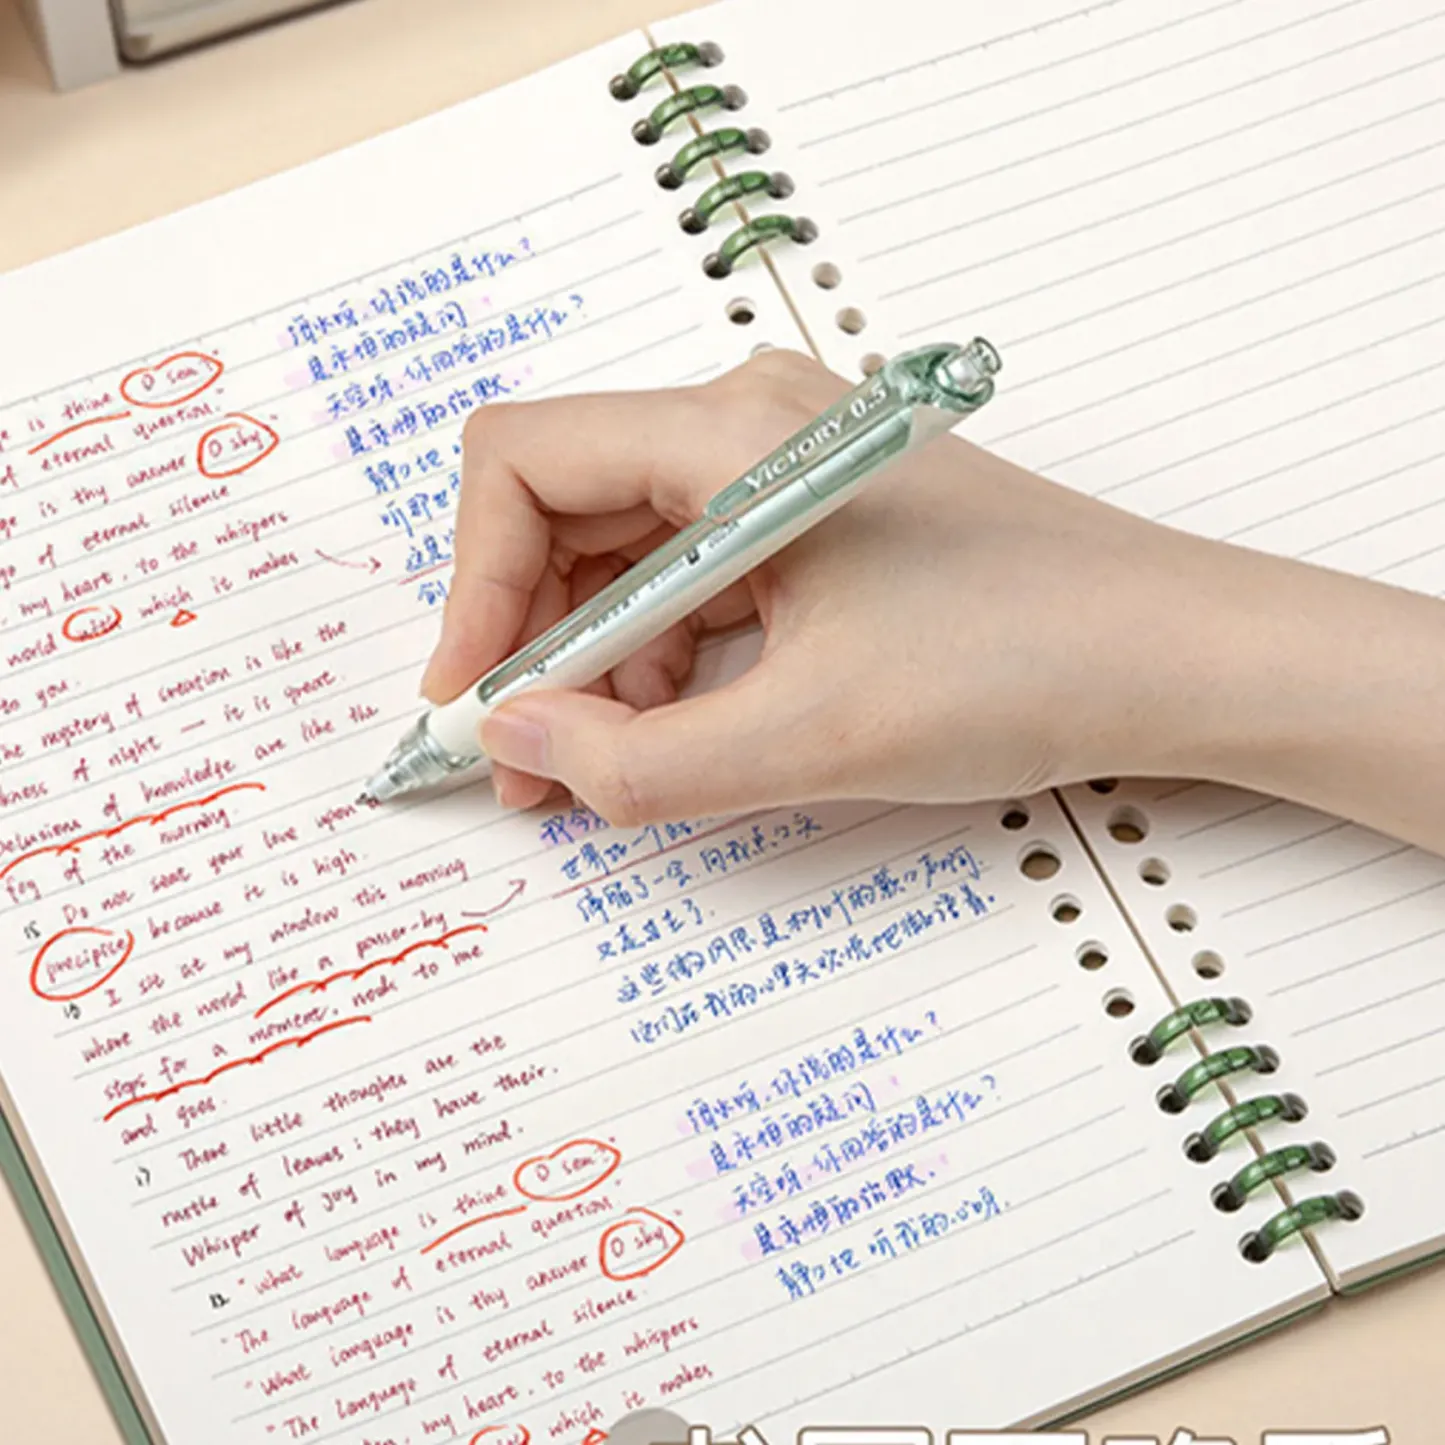 ge is thine O sea?"
of eternal question."
ge is thy answer O sky
ge of eternal silence
, my heart, to the whispers
world with which it makes
to you.
he mystery of creation is like the
kness of night — it is great.
Delusions of knowledge are like the
fog of the morning.
15 Do not seat your love upon a
precipice because it is high.
16 I sit at my window this morning
where the world like a passer-by
stops for a moment, nods to me
and goes.
17 There little thoughts are the
rustle of leaves; they have their.
Whisper of joy in my mind.
12 "what language is thine O sea?"
"The language of eternal question."
"What language is thy answer O sky"
"The language of eternal silence.
, my heart, to the whispers
which it makes
海水呀,你说的是什么?
是永恒的疑问
天空呀,你回答的是什么?
是永恒的沉默.
静静地 听
听那世
这是
创
我今
世界如一个路
停留了一会,向我点点头
又走过去了.
这些微风思,是树叶的簌簌声啊.
它们在我的心里欢悦地微语着.
海水呀,你说的是什么?
是永恒的疑问
天空呀,你回答的是什么?
是永恒的沉默.
静静地 听我的心呀.
VICTORY 0.5